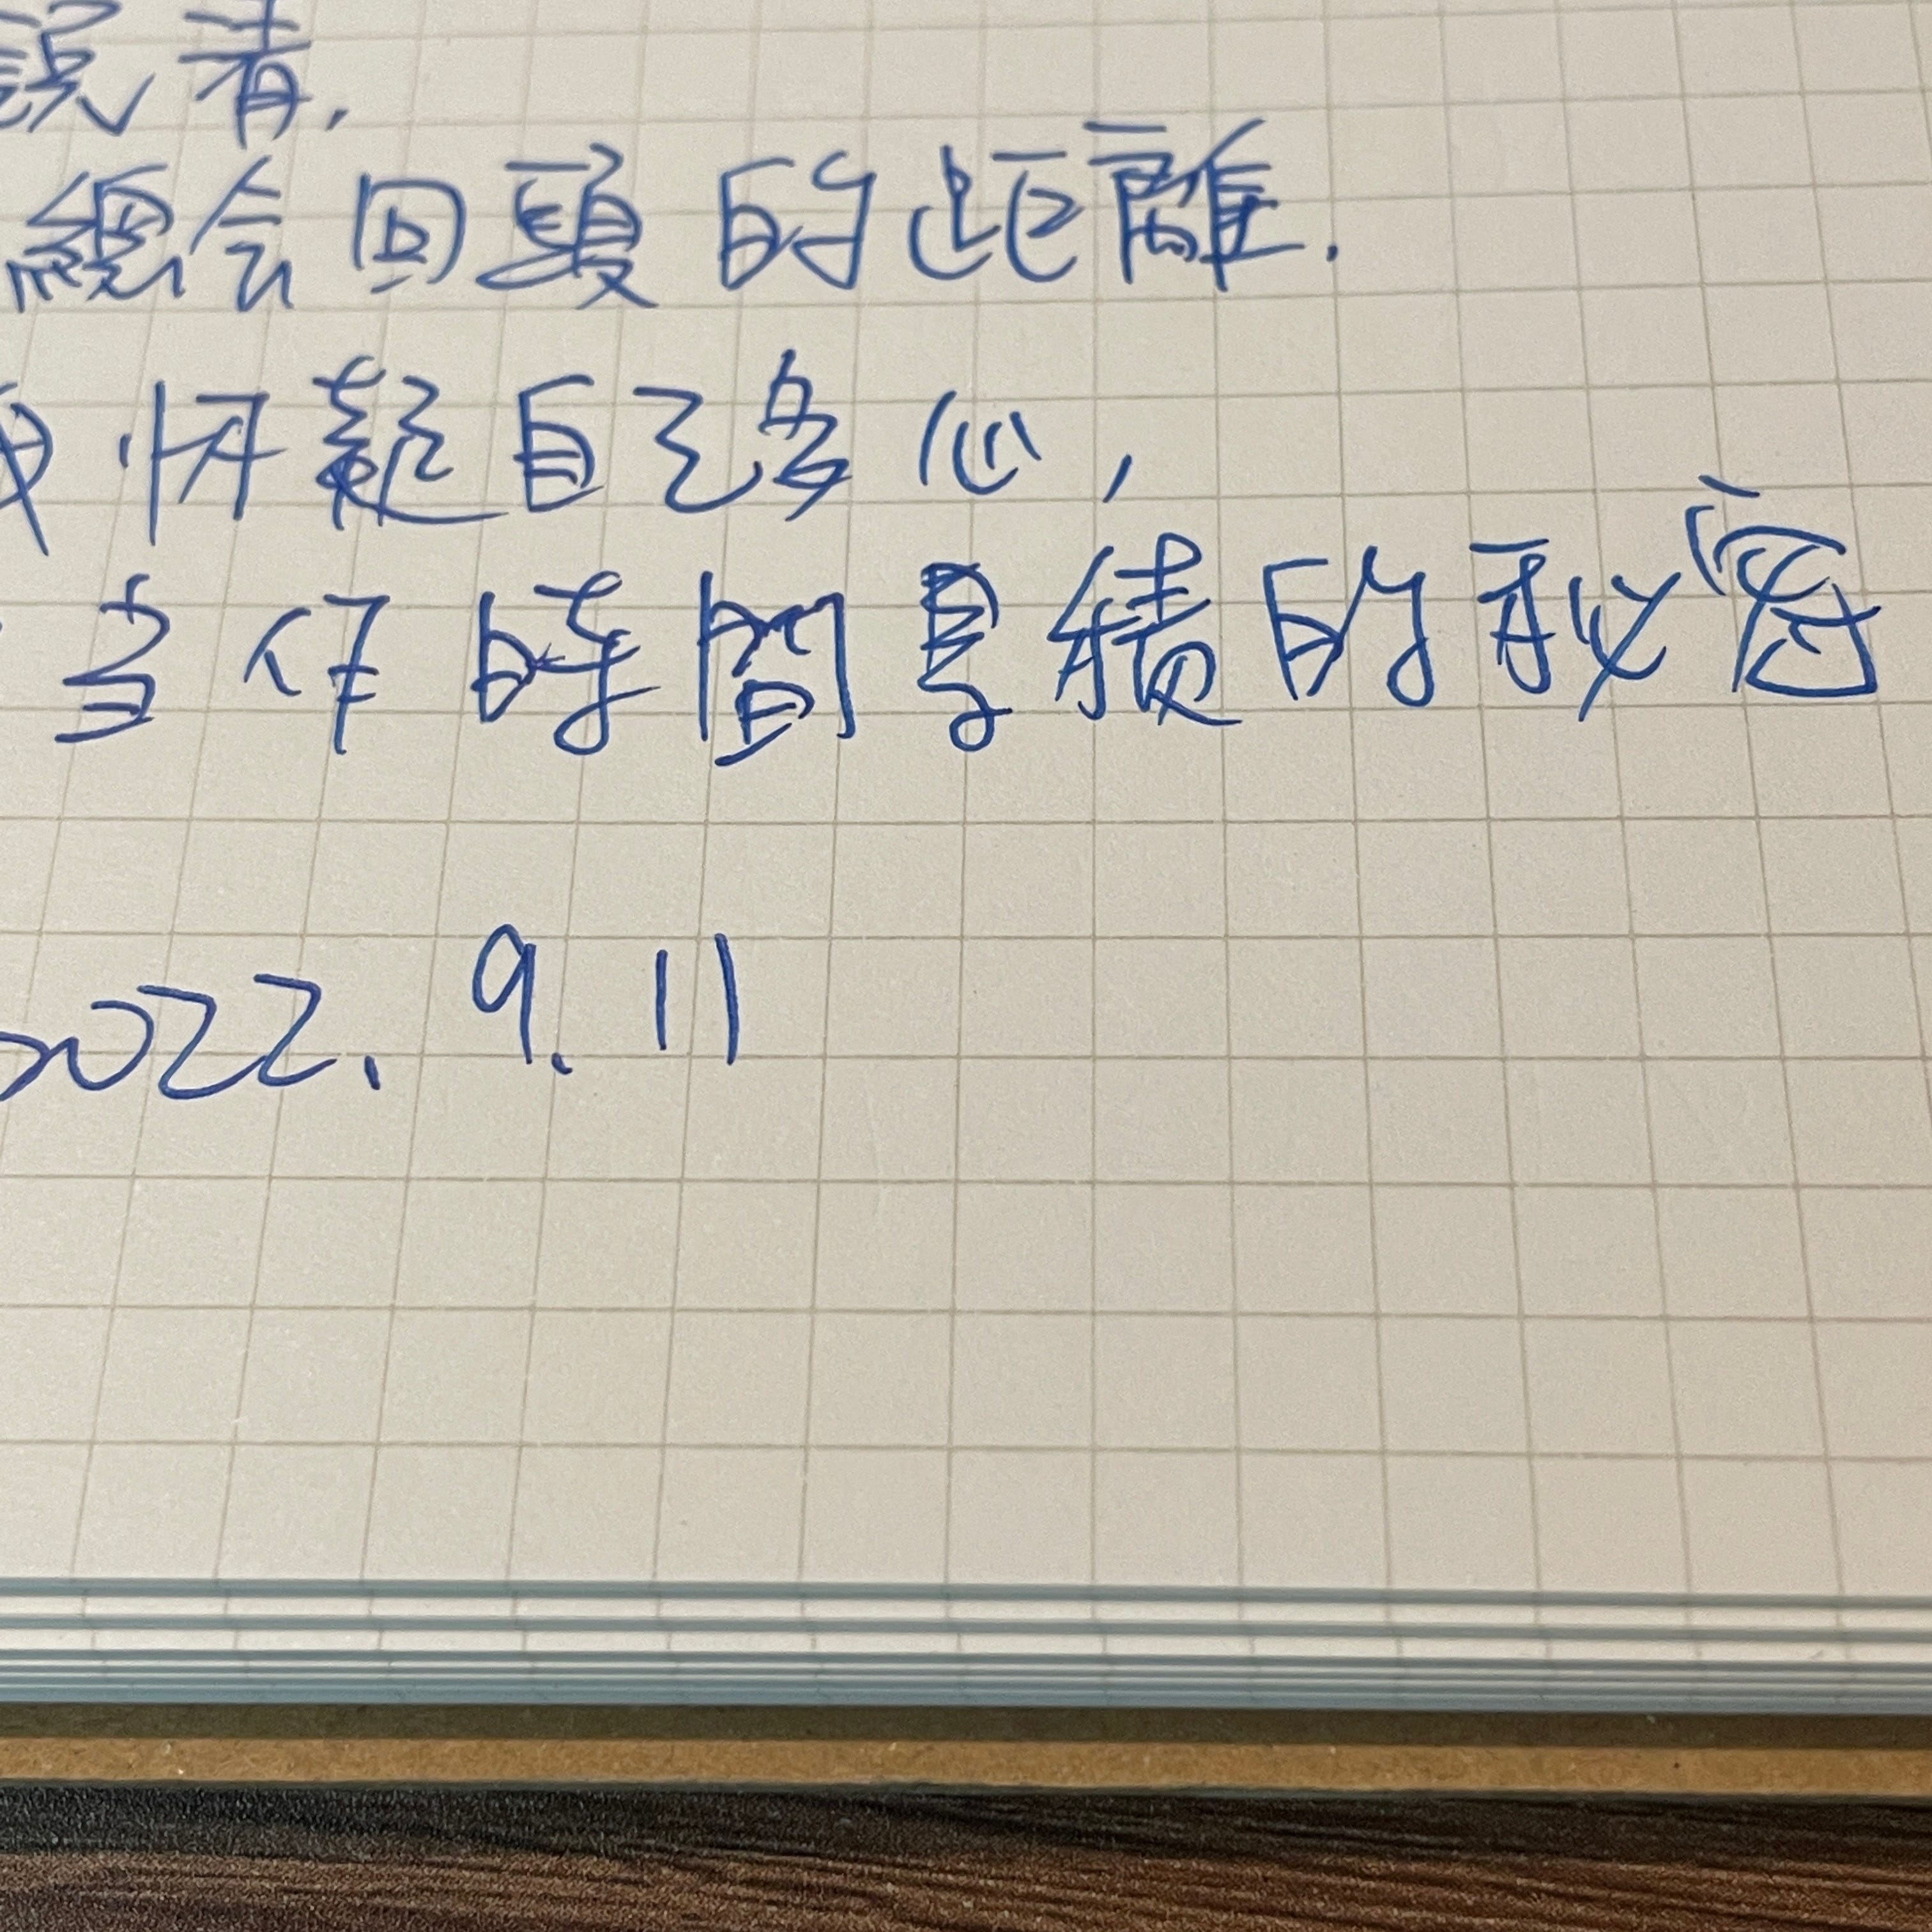 說着.
總会回頭的距離.
我怀疑自己多心,
当作時間累積的秘密
2022. 9. 11